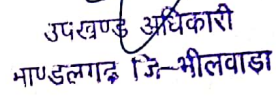 उपखण्ड अधिकारी
माण्डलगढ जि-भीलवाडा